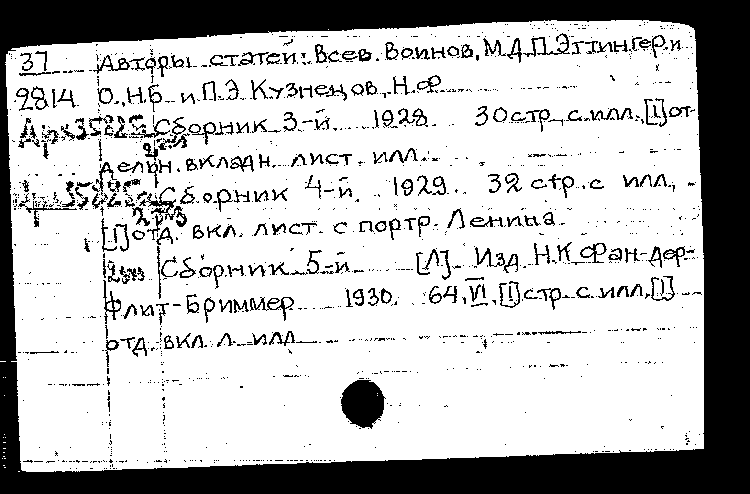 37 Авторы статей: Всев. Воинов, М.Д.П.Эттингер.и
2814 О., Н.Б и П.Э. Кузнецов, Н.Ф
Арх35825а Сборник 3-й. 1928. 30 стр. с илл., [1] от-
2 экз
дельн. вкладн. лист. илл.
Арх35825а Сборник 4-й. 1929. 32 стр. с илл.,
2 экз
[1] отд. вкл. лист. с портр. Ленина.
2 экз Сборник 5-й [Л]. Изд. Н.К Фан-дер-
Флит-Бриммер 1930. 64, VI, [1] стр. с илл., [1]
отд. вкл. л. илл